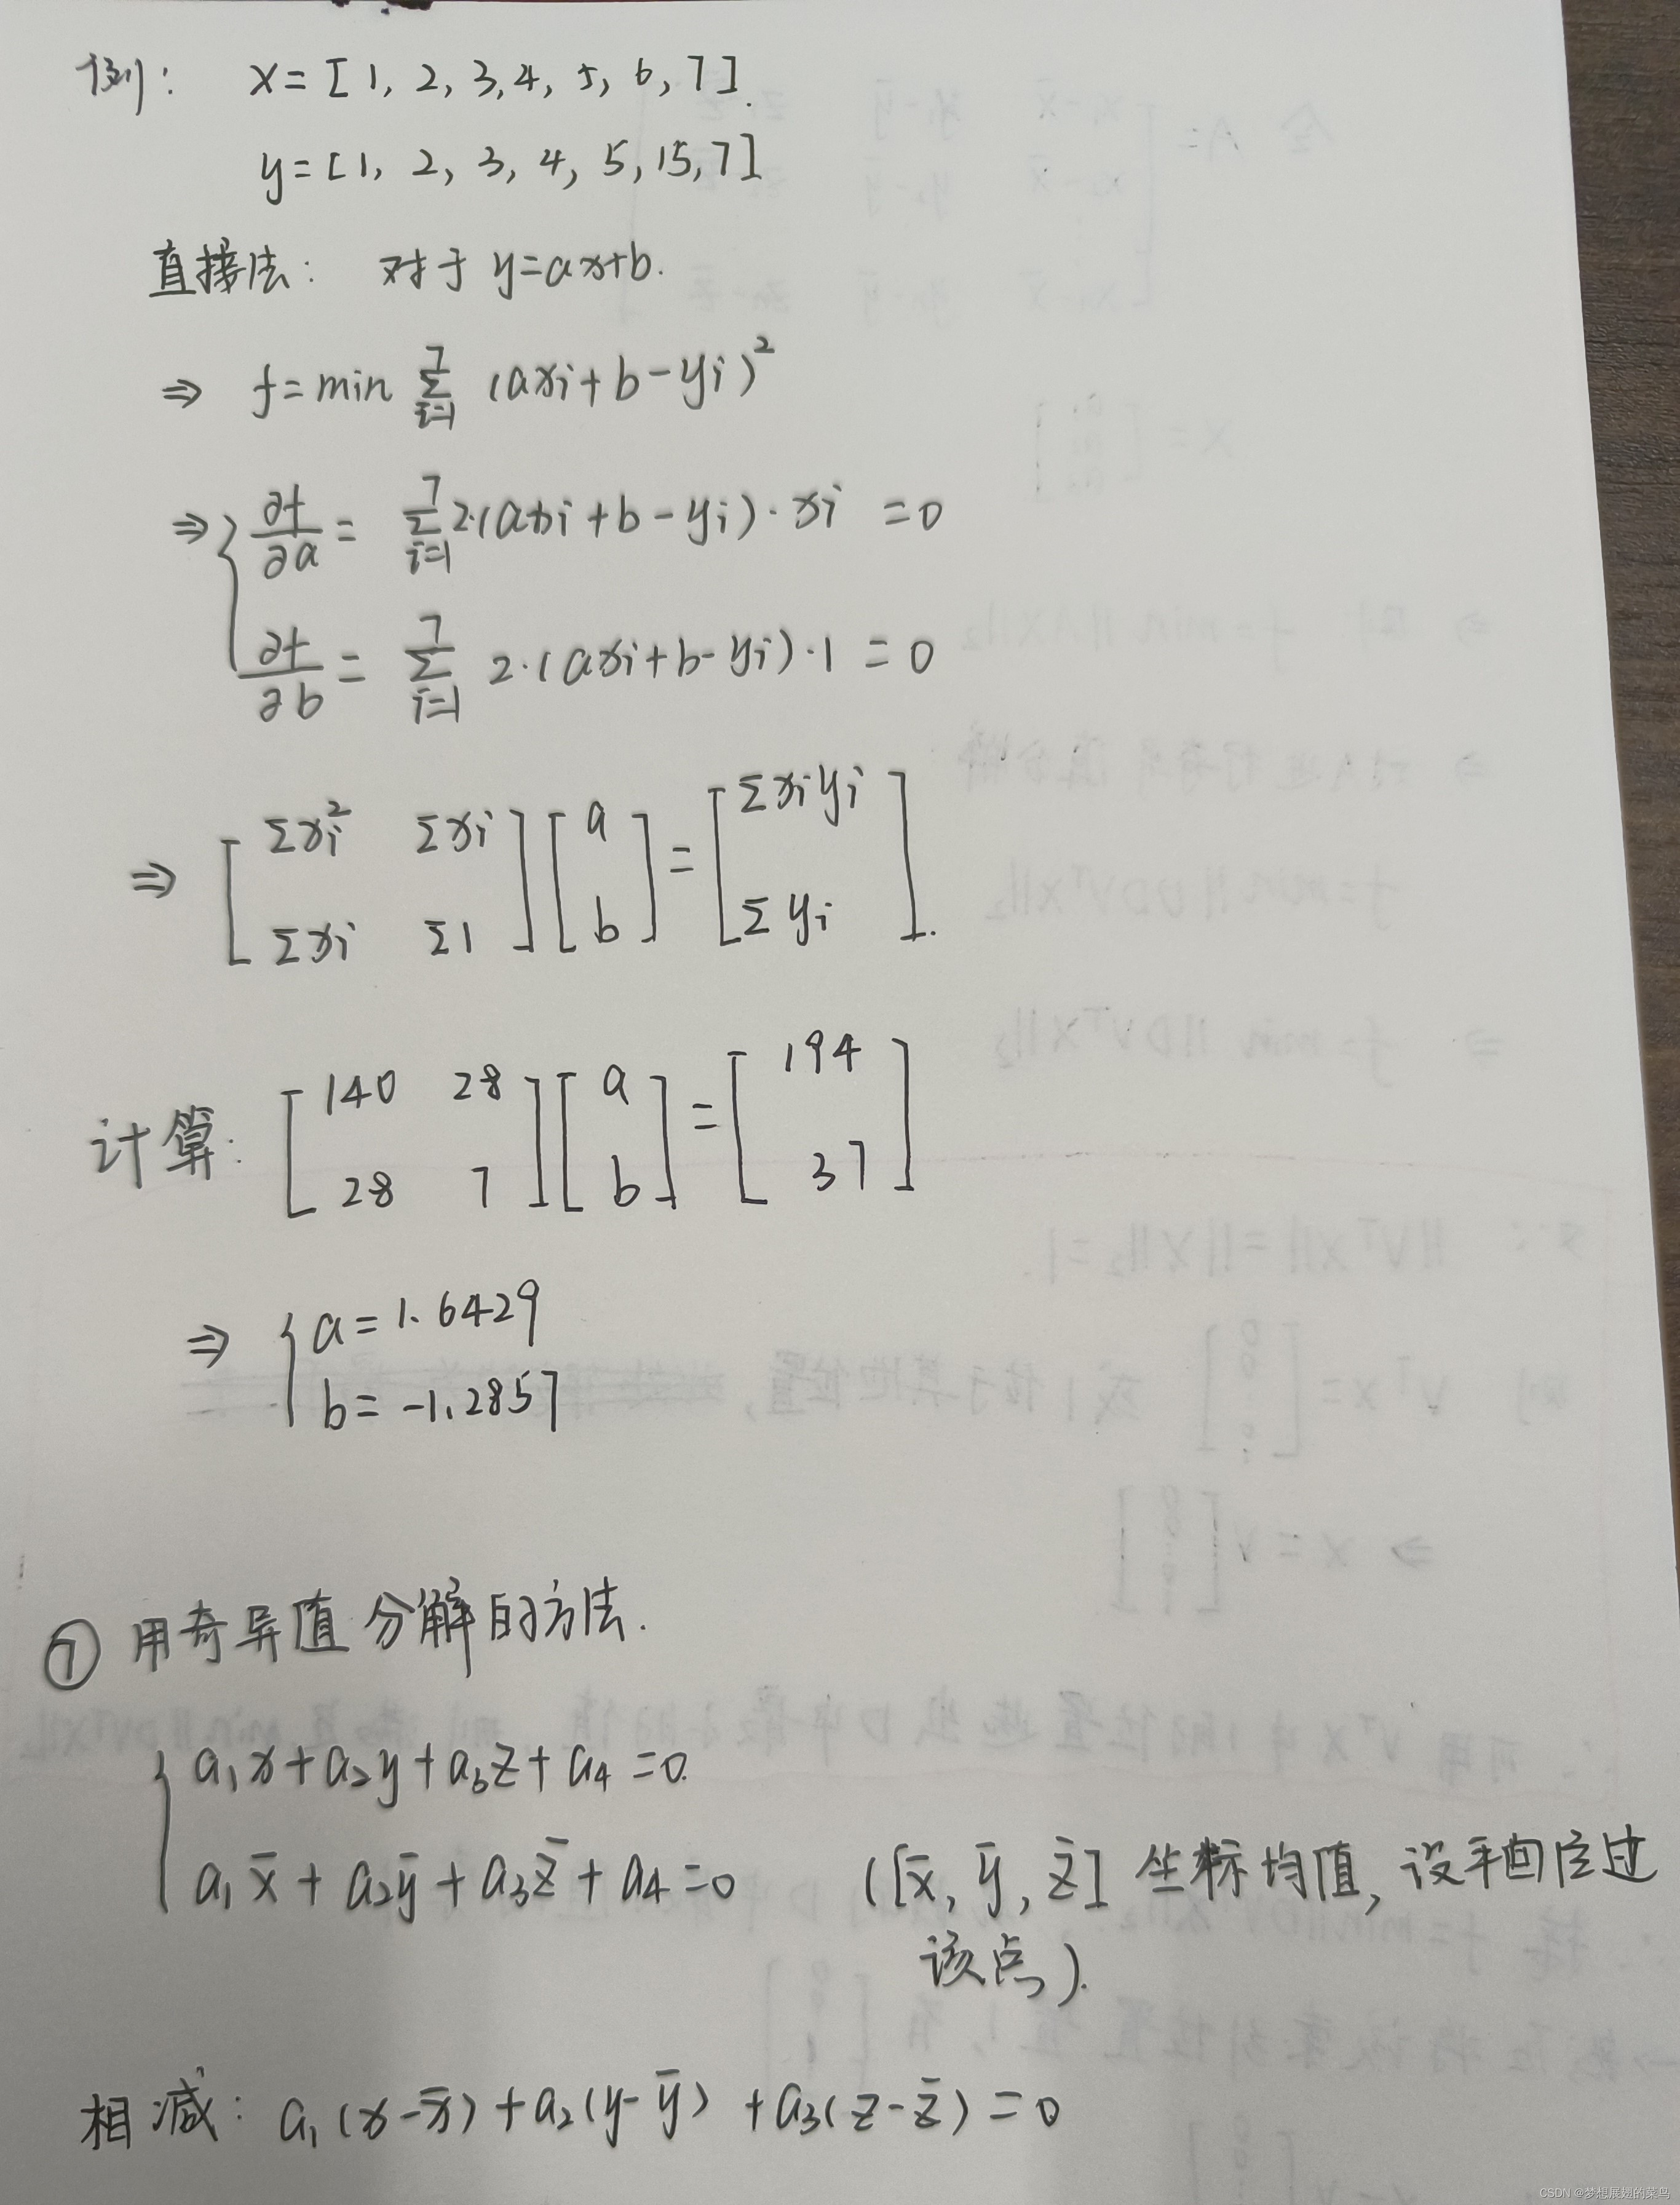 例: x=[1, 2, 3, 4, 5, 6, 7].
y=[1, 2, 3, 4, 5, 15, 7]
直接法: 对于 y=ax+b.
⇒ f=min Σ_{i=1}^{7} (axi+b-yi)²
⇒ { ∂f/∂a = Σ_{i=1}^{7} 2·(axi+b-yi)·xi =0
∂f/∂b = Σ_{i=1}^{7} 2·(axi+b-yi)·1 =0
⇒ [ Σxi² Σxi ; Σxi Σ1 ] [ a ; b ] = [ Σxiyi ; Σyi ].
计算: [ 140 28 ; 28 7 ] [ a ; b ] = [ 194 ; 37 ]
⇒ { a=1.6429
b=-1.2857
⑦ 用奇异值分解的方法.
{ a₁x+a₂y+a₃z+a₄=0.
a₁x̄+a₂ȳ+a₃z̄+a₄=0 ([x̄, ȳ, z̄] 坐标均值, 设平面应过
该点).
相减: a₁(x-x̄)+a₂(y-ȳ)+a₃(z-z̄)=0
CSDN @梦想展翅的菜鸟